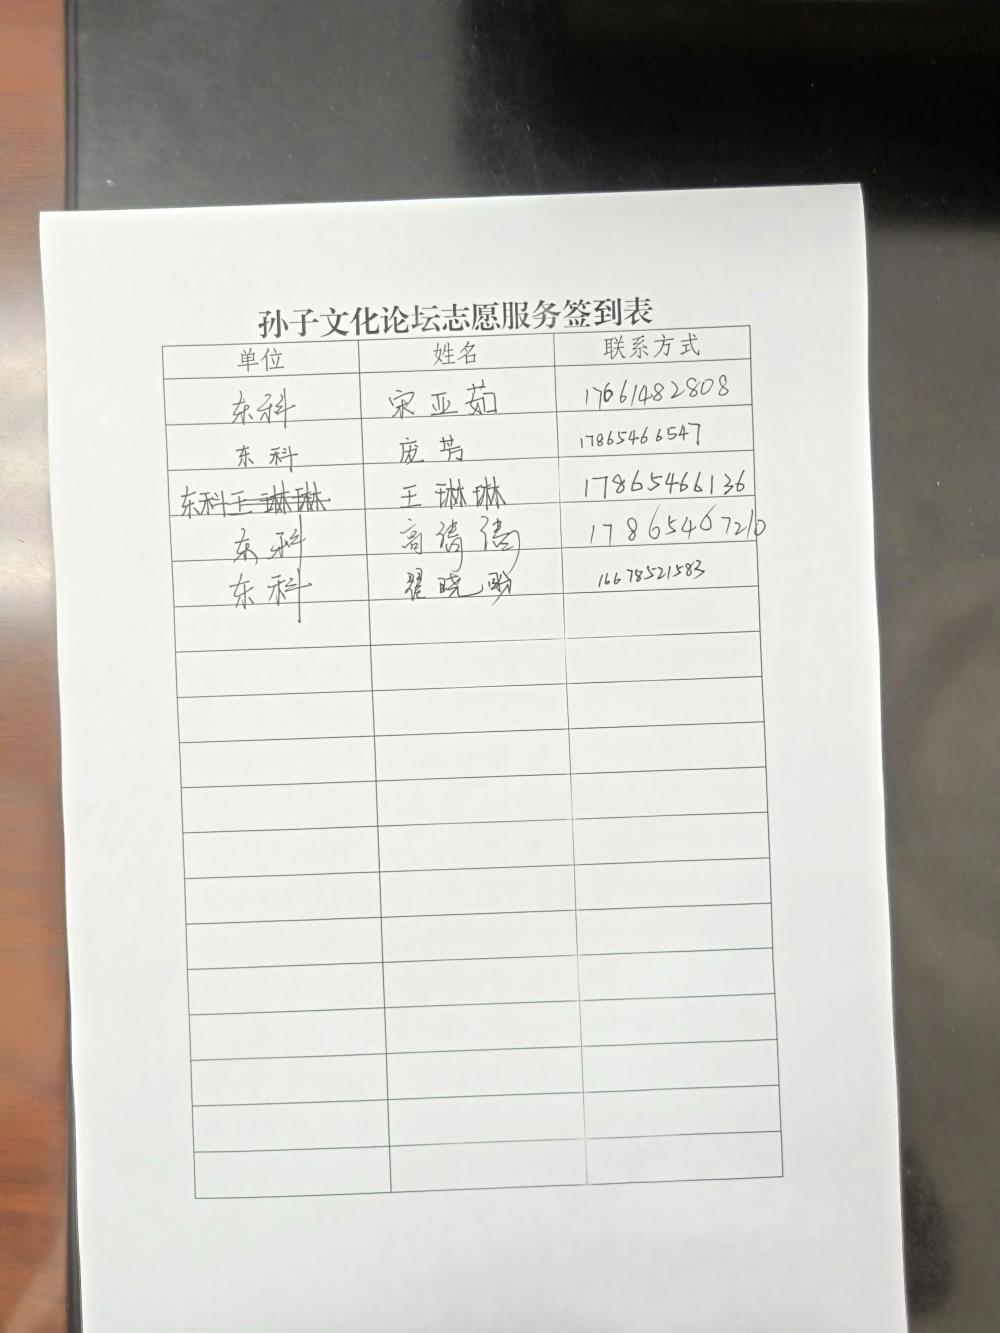 孙子文化论坛志愿服务签到表
单位 姓名 联系方式
东科 宋亚茹 17661482808
东科 庞芳 17865466547
东科王琳琳 王琳琳 17865466136
东科 高 17865467210
东科 翟晓 16678521583